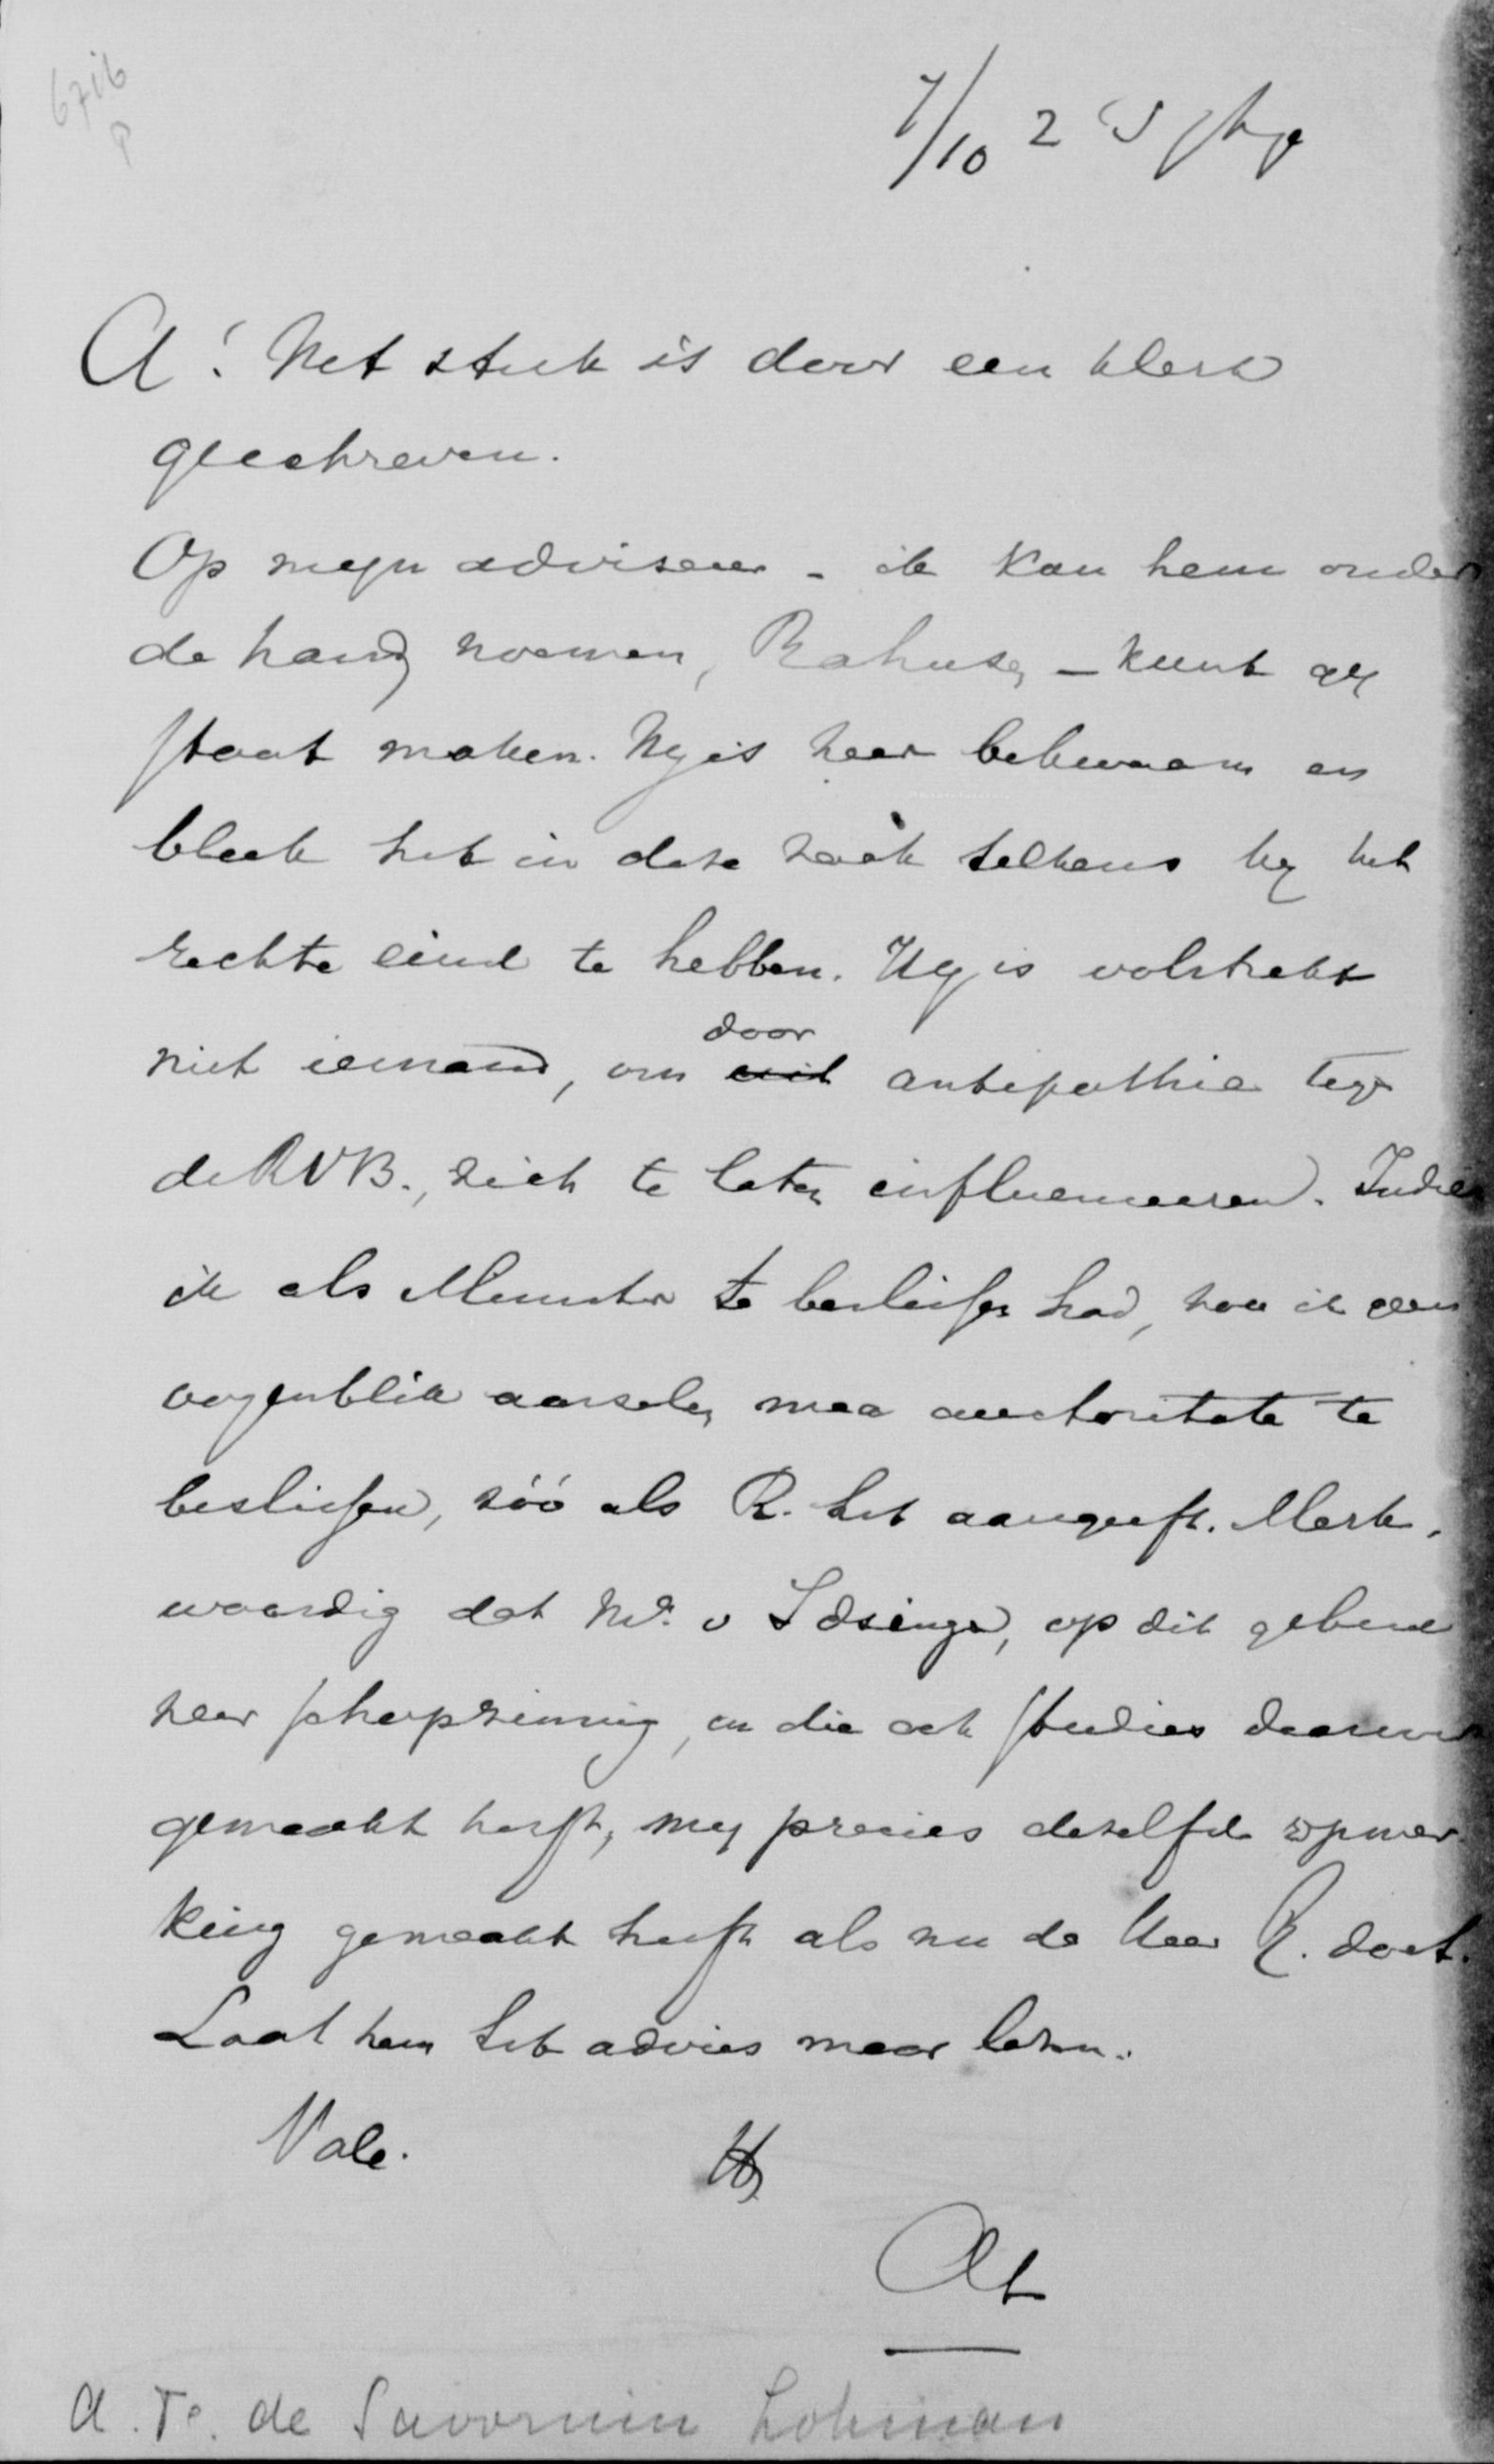 6716
P
7/10 2
A! Het stuk is door een klerk
geschreven.
Op mijn adviseur - ik kan hem onder
de hand noemen, Rahusen, - kunt gij
staat maken. Hij is zeer bekwaam en
bleek het in deze zaak telkens bij het
rechte eind te hebben. Hij is volstrekt
niet iemand, om uit door antipathie tegen
de RVB., zich te laten influenceeren. Indien
ik als Minister te beslissen had, zou ik geen
oogenblik aarselen mea auctoritate te
beslissen, zóó als R. het aangeeft. Merk-
waardig dat Mr. v Idsinga, op dit gebied
zeer scherpzinnig, en die ook studies daarover
gemaakt heeft, mij precies dezelfde opmer
king gemaakt heeft als nu de Heer R. doet.
Laat hem het advies maar lezen.
Vale.
A. F. de Savornin Lohman